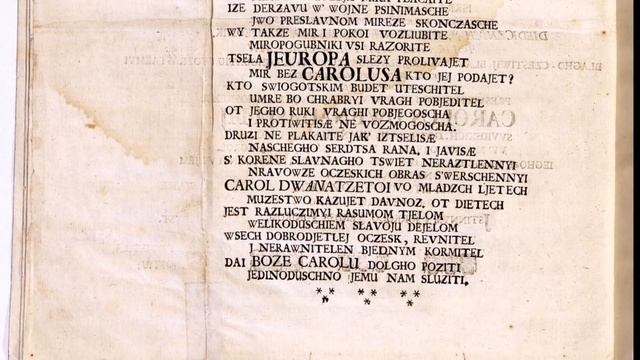 IZE DERZAVU W' WOJNE PSINIMASCHE
JWO PRESLAVNOM MIREZE SKONCZASCHE
WY TAKZE MIR I POKOI VOZLIUBITE
MIROPOGUBNIKI VSI RAZORITE
TSELA JEUROPA SLEZY PROLIVAJET
MIR BEZ CAROLUSA KTO JEJ PODAJET?
KTO SWIOGOTSKIM BUDET UTESCHITEL
UMRE BO CHRABRYI VRAGH POBJEDITEL
OT JEGHO RUKI VRAGHI POBJEGOSCHA
I PROTIWITISÆ NE VOZMOGOSCHA.
DRUZI NE PLAKAITE JAK' IZTSELISÆ
NASCHEGHO SERDTSA RANA, I JAVISÆ
S' KORENE SLAVNAGHO TSWIET NERAZTLENNYI
NRAVOWZE OCZESKICH OBRAS S'WERSCHENNYI
CAROL DWANATZETOI VO MLADZCH LJETECH
MUZESTWO KAZUJET DAVNOZ, OT DIETECH
JEST RAZLUCZIMYJ RASUMOM TJELOM
WELIKODUSCHIEM SLAVOJU DEJELOM
WSECH DOBRODJETLEJ OCZESK, REVNITEL
J NERAWNITELEN BJEDNYM KORMITEL
DAI BOZE CAROLU DOLGHO POZITI
JEDINODUSCHNO JEMU NAM SLUZITI.